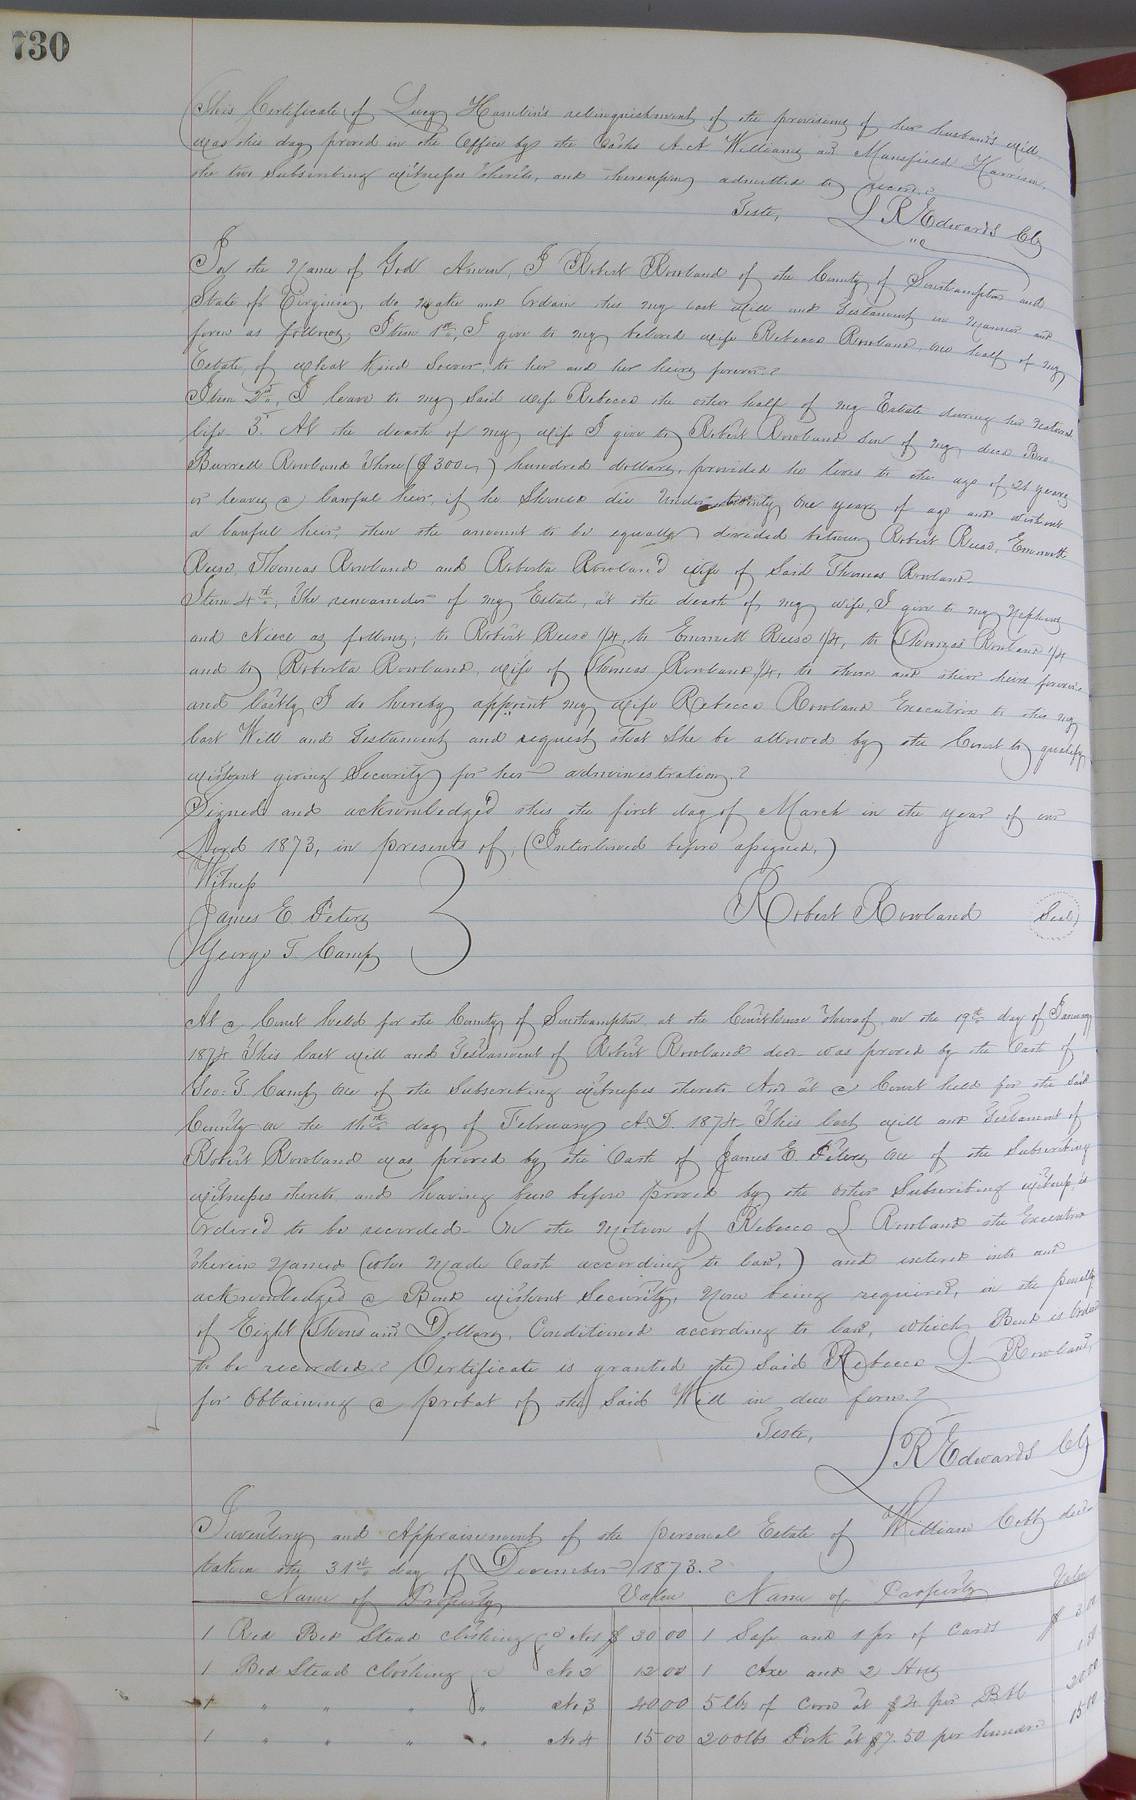 730
This Certificate of Lucy Hamlin's relinquishment of the provisions of her husband's will
was this day proved in the Office by the Oaths A. A. Williams and Mansfield Harrison,
the two Subscribing witnesses thereto, and thereupon admitted to record.
Teste, L R Edwards Clk
In the Name of God Amen, I Robert Rowland of the County of Southampton and
State of Virginia, do make and Ordain this my last Will and Testament in Manner and
form as follows, Item 1st, I give to my beloved wife Rebecca Rowland, one half of my
Estate, of what Kind Soever, to her and her heirs forever.
Item 2nd, I leave to my Said wife Rebecca the other half of my Estate during her natural
life. 3. At the death of my wife I give to Robert Rowland Son of my decd Bro
Burrell Rowland Three ($300) hundred dollars, provided he lives to the age of 21 years
or leaves a lawful heir, if he Should die Under twenty One years of age and without
a lawful heir, then the amount to be equally divided between Robert Reese, Emmett
Reese, Thomas Rowland and Roberta Rowland wife of Said Thomas Rowland.
Item 4th, The remainder of my Estate, at the death of my wife, I give to my Nephews
and Niece as follows; to Robert Reese 1/4, to Emmett Reese 1/4, to Thomas Rowland 1/4
and to Roberta Rowland, wife of Thomas Rowland 1/4, to them and their heirs forever
and lastly I do hereby appoint my wife Rebecca Rowland Executrix to this my
last Will and Testament and request that She be allowed by the Court to qualify
without giving Security for her administration.
Signed and acknowledged this the first day of March in the year of our
Lord 1873, in presents of, (Interlined before assigned,)
Witness
James E Peters
George T. Camp
Robert Rowland Seal
At a Court held for the County of Southampton at the Courthouse thereof on the 19th day of January
1874 This last will and Testament of Robert Rowland decd was proved by the Oath of
Geo. T. Camp One of the Subscribing witnesses thereto And at a Court held for the Said
County on the 16th day of February A.D. 1874 This last will and Testament of
Robert Rowland was proved by the Oath of James E. Peters One of the Subscribing
witnesses thereto and having been before proved by the other Subscribing witness, is
Ordered to be recorded. On the Motion of Rebecca L Rowland the Executrix
therein Named (who made Oath according to law,) and entered into and
acknowledged a Bond without Security, None being required, in the penalty
of Eight Thousand Dollars, Conditioned according to law, which Bond is Ordered
to be recorded. Certificate is granted the Said Rebecca L. Rowland,
for Obtaining a probat of the Said Will in due form.
Teste, L R Edwards Clk
Inventory and Appraisement of the personal Estate of William Cobb decd
taken the 31st day of December 1873.
Name of Property Value Name of Property Value
1 Bed Bed Stead Clothing &c No 1 $ 30 00 1 Safe and 1 pr of Cards $ 3.00
1 Bed Stead Clothing &c No 2 12 00 1 Axe and 2 Hoes 1.50
1 " " " " No 3 40 00 5 lbs of Corn at $4 per Bbl 20.00
1 " " " " No 4 15 00 200 lbs Pork at $7.50 per hundred 15.00